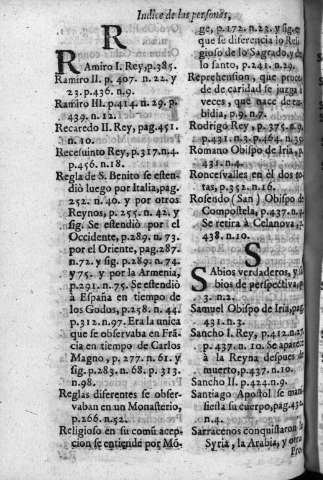 Indice de las personas,
R
RAmiro I. Rey, p.385.
Ramiro II. p. 407. n.22. y
23. p.436. n.9.
Ramiro III. p.414. n. 29. p.
439. n.12.
Recaredo II. Rey, pag.451.
n. 10.
Recesuinto Rey, p.317.n.4.
p.456. n.18.
Regla de S. Benito se esten-
diò luego por Italia, pag.
252. n. 40. y por otros
Reynos, p. 255. n. 42. y
sig. Se estendiò por el
Occidente, p.289. n. 73.
por el Oriente, pag.287.
n.72. y sig. p.289. n.74.
y 75. y por la Armenia,
p.291. n.75. Se estendiò
à España en tiempo de
los Godos, p.258. n. 44.
p.312. n.97. Era la unica
que se observaba en Fran-
cia en tiempo de Carlos
Magno, p.277. n.61. y
sig. p.283. n. 68. p. 313.
n.98.
Reglas diferentes se obser-
vaban en un Monasterio,
p.266. n.52.
Religioso en su comũ acep-
cion se entiende por Mõ-
ge, p.172. n.23. y sig. e
que se diferencia lo Reli
gioso de lo Sagrado, y d
lo santo, p.241. n.29.
Reprehension, que proce
de de caridad se juzga
veces, que nace de en
bidia, p.9. n.7.
Rodrigo Rey, p.375. n.9.
p.431. n.3. p.464. n.39.
Romano Obispo de Iria, p.
431. n.4.
Roncesvalles en èl dos ro
tas, p.352. n.16.
Rosendo (San) Obispo de
Compostela, p.437. n.4
Se retira à Celanova, p.
438. n.10.
S
SAbios verdaderos, y s
bios de perspectiva, p
3. n.2.
Samuel Obispo de Iria, pag.
431. n.3.
Sancho I. Rey, p.412.n.27
p.437. n. 10. Se aparec
à la Reyna despues de
muerto, p.437. n.10.
Sancho II. p.424. n.9.
Santiago Apostol se mani
fiesta su cuerpo, pag.432
n.4.
Sarracenos conquistaron l
Syria, la Arabia, y otro
Pro